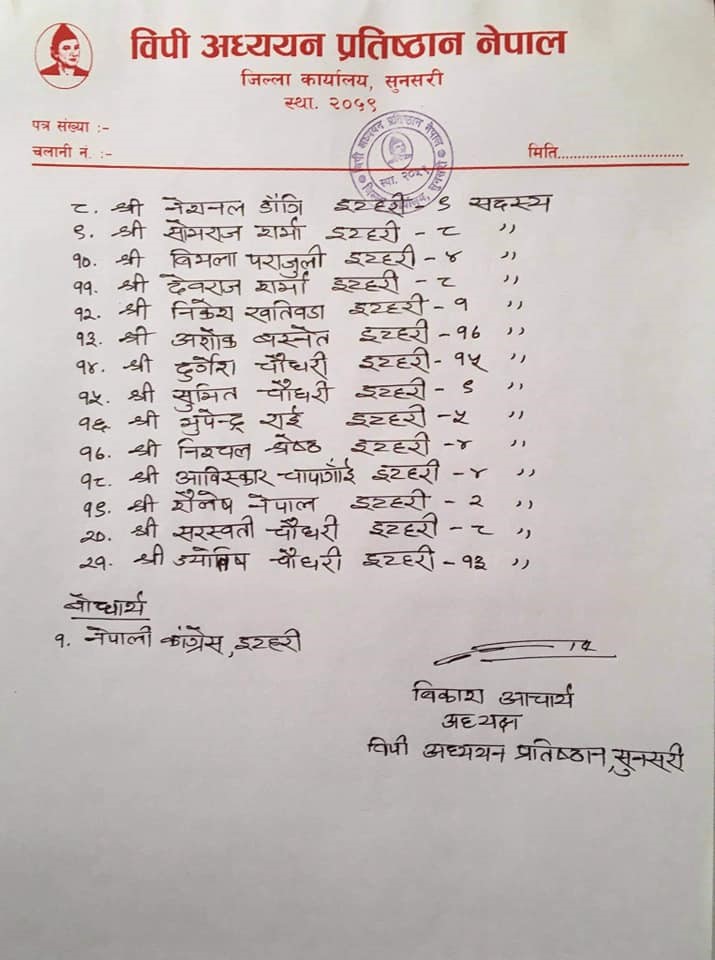 विपी अध्ययन प्रतिष्ठान नेपाल
जिल्ला कार्यालय, सुनसरी
स्था. २०५९
पत्र संख्या :-
चलानी नं. :-
मिति...............................
विपी अध्ययन प्रतिष्ठान नेपाल
स्था. २०५९
जिल्ला कार्यालय, सुनसरी
८. श्री नेशनल डाँगि इटहरी - ९ सदस्य
९. श्री सोमराज शर्मा इटहरी - ८ ,,
१०. श्री बिमला पराजुली इटहरी - ४ ,,
११. श्री देवराज शर्मा इटहरी - ८ ,,
१२. श्री निकेश खतिवडा इटहरी - १ ,,
१३. श्री अशोक बस्नेत इटहरी - १७ ,,
१४. श्री दुर्गेश चौधरी इटहरी - १५ ,,
१५. श्री सुमित चौधरी इटहरी - ९ ,,
१६. श्री भुपेन्द्र राई इटहरी - ५ ,,
१७. श्री निश्चल श्रेष्ठ इटहरी - ४ ,,
१८. श्री आविस्कार चापागाँई इटहरी - ४ ,,
१९. श्री शैलेष नेपाल इटहरी - २ ,,
२०. श्री सरस्वती चौधरी इटहरी - ८ ,,
२१. श्री ज्योतिष चौधरी इटहरी - १३ ,,
बोधार्थ
१. नेपाली कांग्रेस, इटहरी
बिकाश आचार्य
अध्यक्ष
विपी अध्ययन प्रतिष्ठान, सुनसरी